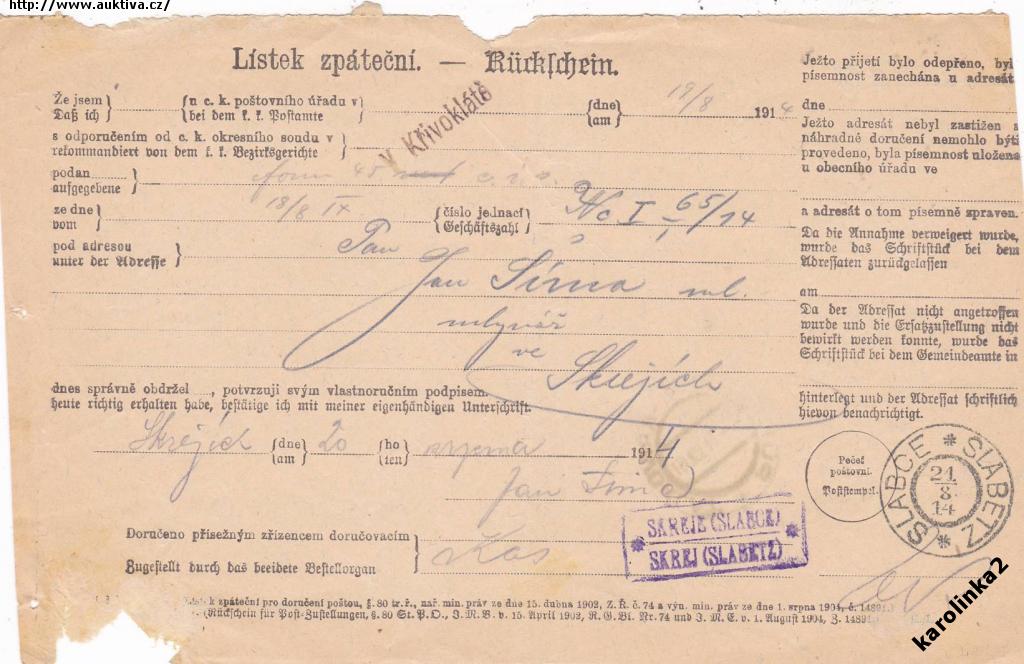 http://www.auktiva.cz/
Lístek zpáteční. — Rückschein.
Že jsem
Daß ich
u c. k. poštovního úřadu v
bei dem k. k. Postamte
v Křivoklátě
dne
am
19/8
1914
s odporučením od c. k. okresního soudu v
rekommandiert von dem k. k. Bezirksgerichte
podan
aufgegebene
form 45
ze dne
vom
18/8 14
číslo jednací
Geschäftszahl
Nc I 65/14
pod adresou
unter der Adresse
Pan
Jan Šíma ml.
mlynář
ve
Skrejích
dnes správně obdržel , potvrzuji svým vlastnoručním podpisem.
heute richtig erhalten habe, bestätige ich mit meiner eigenhändigen Unterschrift.
Skrejích
dne
am
20
ho
ten
srpna
1914
Jan Šíma
Doručeno přísežným zřízencem doručovacím
Zugestellt durch das beeidete Bestellorgan
SKREJE (SLABCE)
SKREJ (SLABETZ)
Ježto přijetí bylo odepřeno, byla
písemnost zanechána u adresáta
dne
Ježto adresát nebyl zastižen a
náhradné doručení nemohlo býti
provedeno, byla písemnost uložena
u obecního úřadu ve
a adresát o tom písemně zpraven.
Da die Annahme verweigert wurde,
wurde das Schriftstück bei dem
Adressaten zurückgelassen
am
Da der Adressat nicht angetroffen
wurde und die Ersatzzustellung nicht
bewirkt werden konnte, wurde das
Schriftstück bei dem Gemeindeamte in
hinterlegt und der Adressat schriftlich
hievon benachrichtigt.
Pečeť
poštovní.
Poststempel.
SLABCE * SLABETZ *
21
8
14
Lístek zpáteční pro doručení poštou, §. 80 tr. ř., nař. min. práv ze dne 15. dubna 1902, Z. Ř. č. 74 a výn. min. práv ze dne 1. srpna 1904, č. 14891.)
(Rückschein für Post-Zustellungen, §. 80 St. P. O., J. M. V. v. 15. April 1902, R. G. Bl. Nr. 74 und J. M. E. v. 1. August 1904, Z. 14891.)
karolinka2